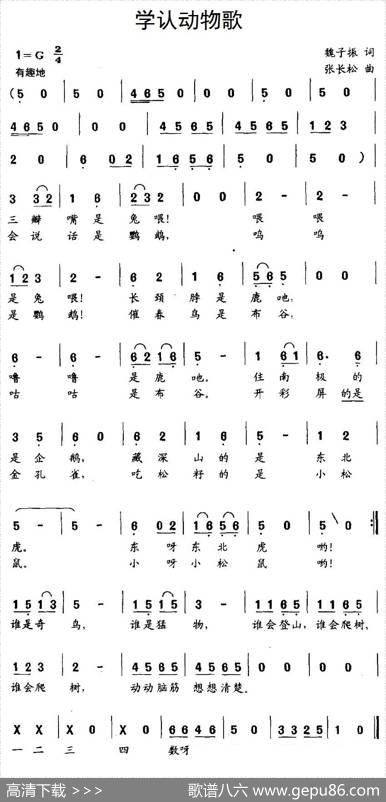 学认动物歌
1=G 2/4
有趣地
魏子振 词
张长松 曲
(5 0 | 5 0 | 4650 | 5 0 | 0 0 | 5 0 |
4650 | 5 0 | 0 0 | 4565 | 4565 | 1 2 3 |
2 0 | 6 02 | 1656 | 5 0 | 5 0) |
3 32 | 1 6 | 232 | 0 0 | 2 - | 2 - |
三 瓣 嘴 是 兔 喂! 喂 喂
会 说 话 是 鹦 鹉, 呜 呜
123 | 2 - | 6 2 | 1 6 | 565 | 0 0 |
是 兔 喂! 长 颈 脖 是 鹿 吔,
是 鹦 鹉! 催 春 鸟 是 布 谷,
6 - | 6 - | 6216 | 5 - | 1 61 | 6· 6 |
噜 噜 是 鹿 吔。 住 南 极 的
咕 咕 是 布 谷。 开 彩 屏 的是
3 5 | 6 0 | 6 2 | 1 6 | 5 - | 1 2 |
是 企 鹅, 藏 深 山 的 是 东 北
金 孔 雀, 吃 松 籽 的 是 小 松
5 - | 5 - | 6 02 | 1656 | 5 0 | 5 0 :|
虎。 东 呀 东 北 虎 哟!
鼠。 小 呀 小 松 鼠 哟!
1513 | 5 - | 1515 | 3 - | 1165 | 1165 |
谁是奇 鸟, 谁是猛 物, 谁会登山, 谁会爬树,
1 2 3 | 2 - | 4565 | 4565 | 0 0 | 0 0 |
谁会爬 树, 动动脑筋 想想清楚。
X X | X 0 | X 0 | 6646 | 5 0 | 3325 | 1 0 |
一 二 三 四 数呀
高清下载 >>>
歌谱八六 www.gepu86.com